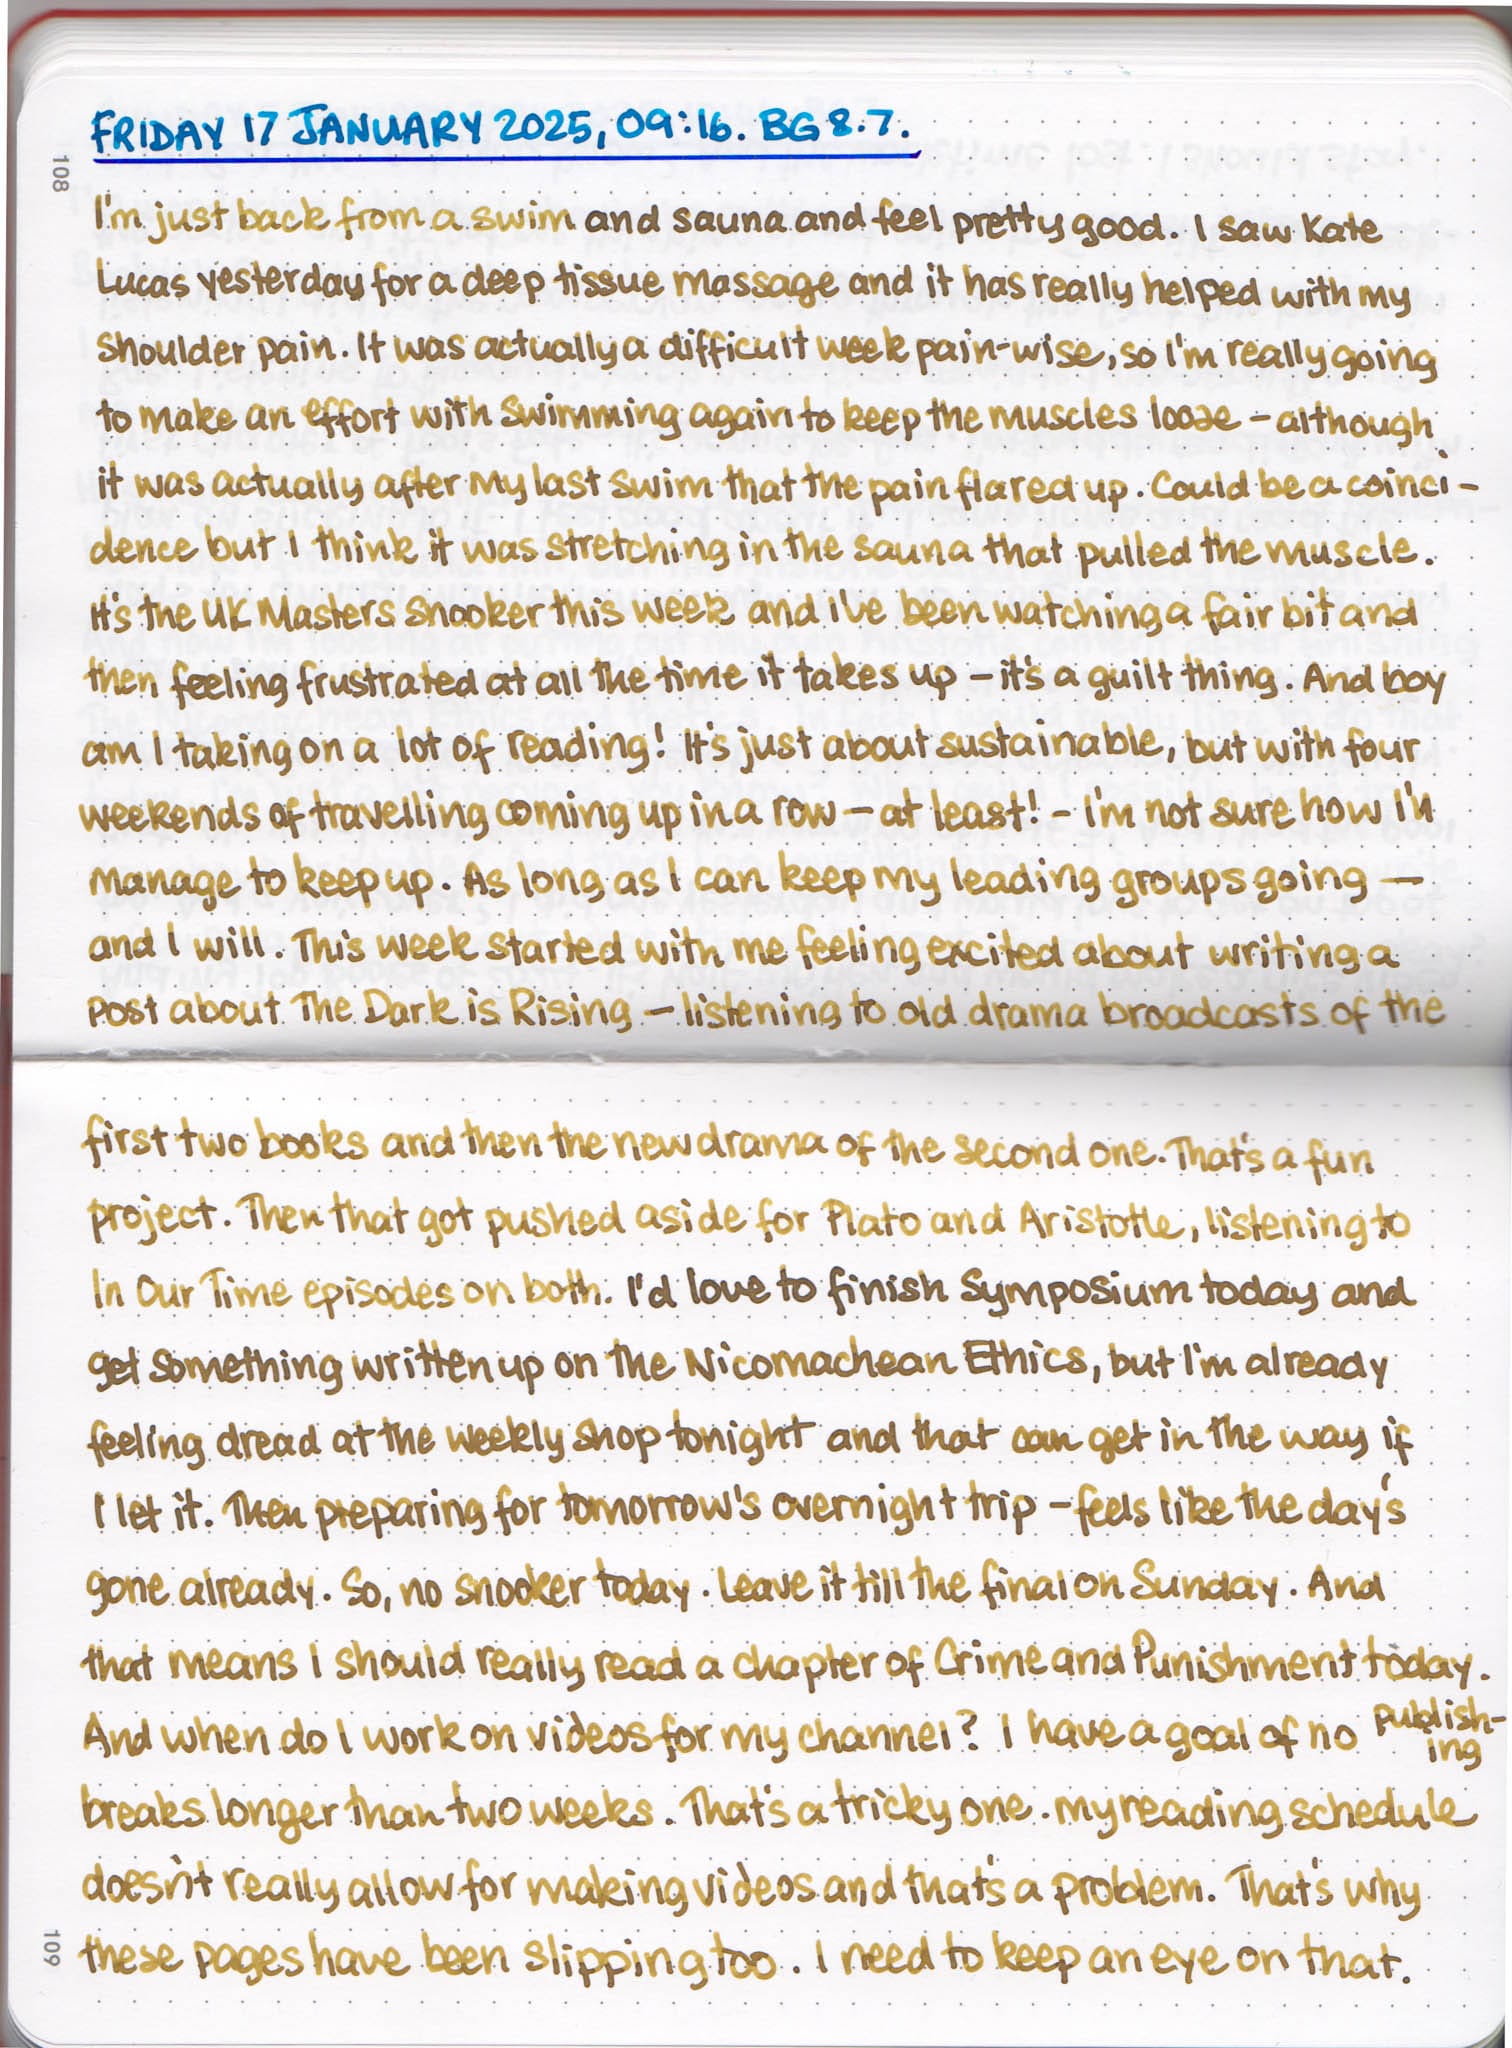 FRIDAY 17 JANUARY 2025, 09:16. BG 8.7.
108
I'm just back from a swim and sauna and feel pretty good. I saw Kate
Lucas yesterday for a deep tissue massage and it has really helped with my
shoulder pain. It was actually a difficult week pain-wise, so I'm really going
to make an effort with swimming again to keep the muscles loose – although
it was actually after my last swim that the pain flared up. Could be a coinci-
dence but I think it was stretching in the sauna that pulled the muscle.
It's the UK Masters Snooker this week and I've been watching a fair bit and
then feeling frustrated at all the time it takes up – it's a guilt thing. And boy
am I taking on a lot of reading! It's just about sustainable, but with four
weekends of travelling coming up in a row – at least! – I'm not sure how I'll
manage to keep up. As long as I can keep my leading groups going –
and I will. This week started with me feeling excited about writing a
post about The Dark is Rising – listening to old drama broadcasts of the
first two books and then the new drama of the second one. That's a fun
project. Then that got pushed aside for Plato and Aristotle, listening to
In Our Time episodes on both. I'd love to finish Symposium today and
get something written up on the Nicomachean Ethics, but I'm already
feeling dread at the weekly shop tonight and that can get in the way if
I let it. Then preparing for tomorrow's overnight trip – feels like the day's
gone already. So, no snooker today. Leave it till the final on Sunday. And
that means I should really read a chapter of Crime and Punishment today.
And when do I work on videos for my channel? I have a goal of no publish-
ing
breaks longer than two weeks. That's a tricky one. My reading schedule
doesn't really allow for making videos and that's a problem. That's why
these pages have been slipping too. I need to keep an eye on that.
109